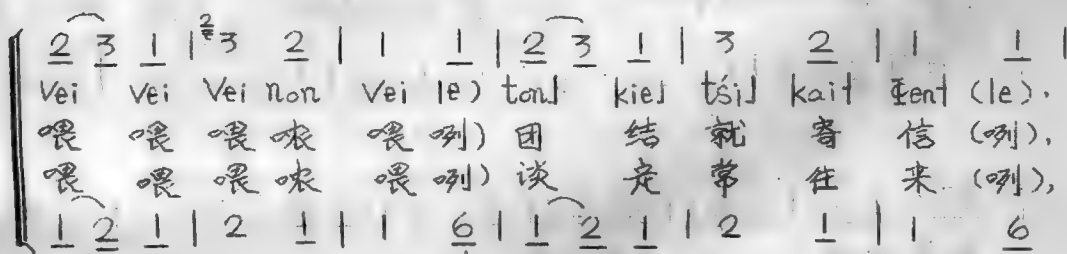 2 3 1 | 2 3 2 | 1 1 | 2 3 1 | 3 2 | 1 1 |
Vei vei Vei non Vei le) ton˩ kie˩ tśi˩ kai˧ (le).
喂 喂 喂 哝 喂 咧) 团 结 就 寄 信 (咧),
喂 喂 喂 哝 喂 咧) 谈 常 往 来 (咧),
1 2 1 | 2 1 | 1 6 | 1 2 1 | 2 1 | 1 6